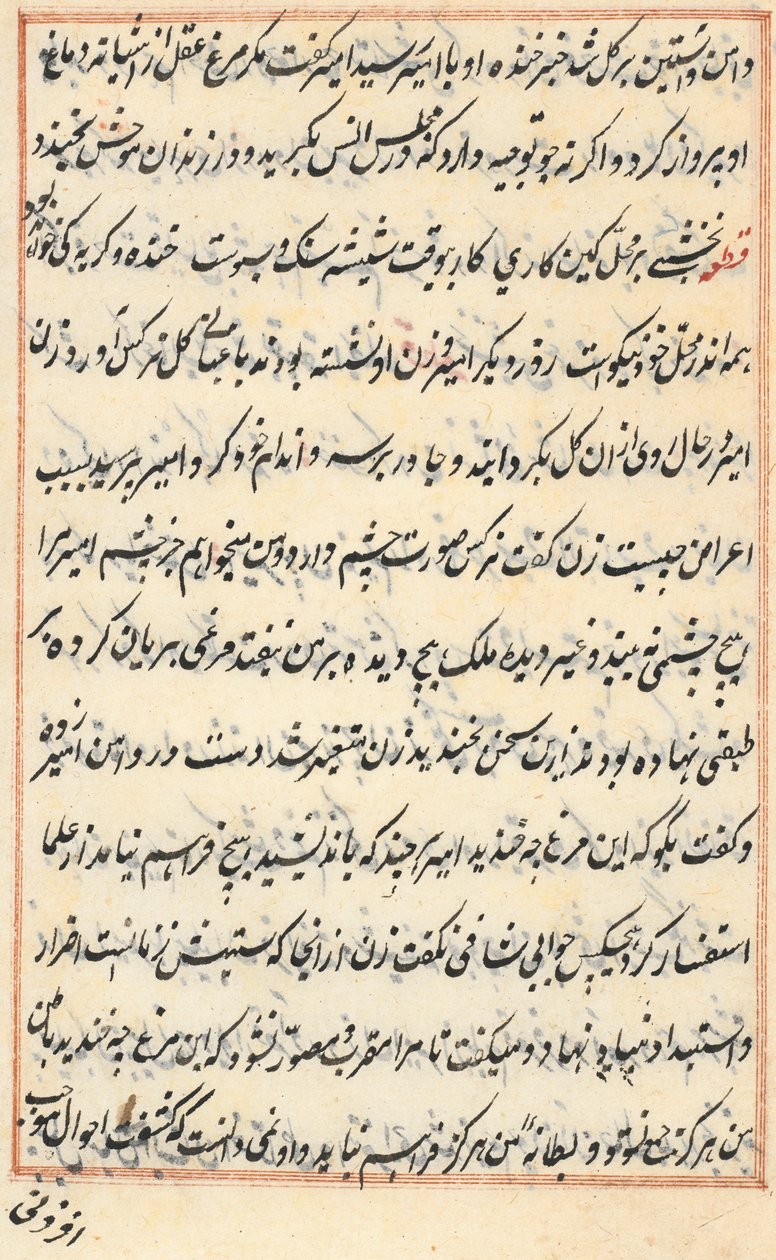 دامن و آستین پر گل شد خبر خنده او با امیر رسید امیر گفت مگر مرغ عقل از آشیانه دماغ
او پرواز کرد و اگر نه چو توجیه دارد که در مجلس انس بگرید و در زندان خوش بخندد
قطعه نخشبی بر محل کین کاری کار بیوقت شیشه سنک و سبوست خنده و گریه کی خوش بود
همه اندر محل خود نیکوست روز دیگر امیر و زن او نشسته بودند باغبانی گل نرگس آورد زن
امیر در حال روی ازان گل بگردانید و چادر بر سر و اندام خود کرد امیر پرسید سبب
اعراض چیست زن گفت نرگس صورت چشم دارد و من میخواهم جز چشم امیر مرا
هیچ چشمی نه بیند و غیر دیده ملک هیچ دیده بر من نیفتد مرغی بریان کرده بر
طبقی نهاده بودند ازین سخن بخندید زن متغیر شد و دست در دامن امیر زده
و گفت بگو که این مرغ چه خندید امیر هر چند که باندیشید هیچ فراهم نیامد از علما
استفسار کرد هیچکس جوابی شافی نگفت زن از انجا که ستیزش زنانست اضرار
و استبداد بنیاد نهاد و میگفت تا مرا مقرر و مصور نشود که این مرغ چه خندید باطن
من هرگز جمع نشود و بطانهٔ من هرگز فراهم نیاید و او نمی دانست که کشف احوال موجب
افزونی